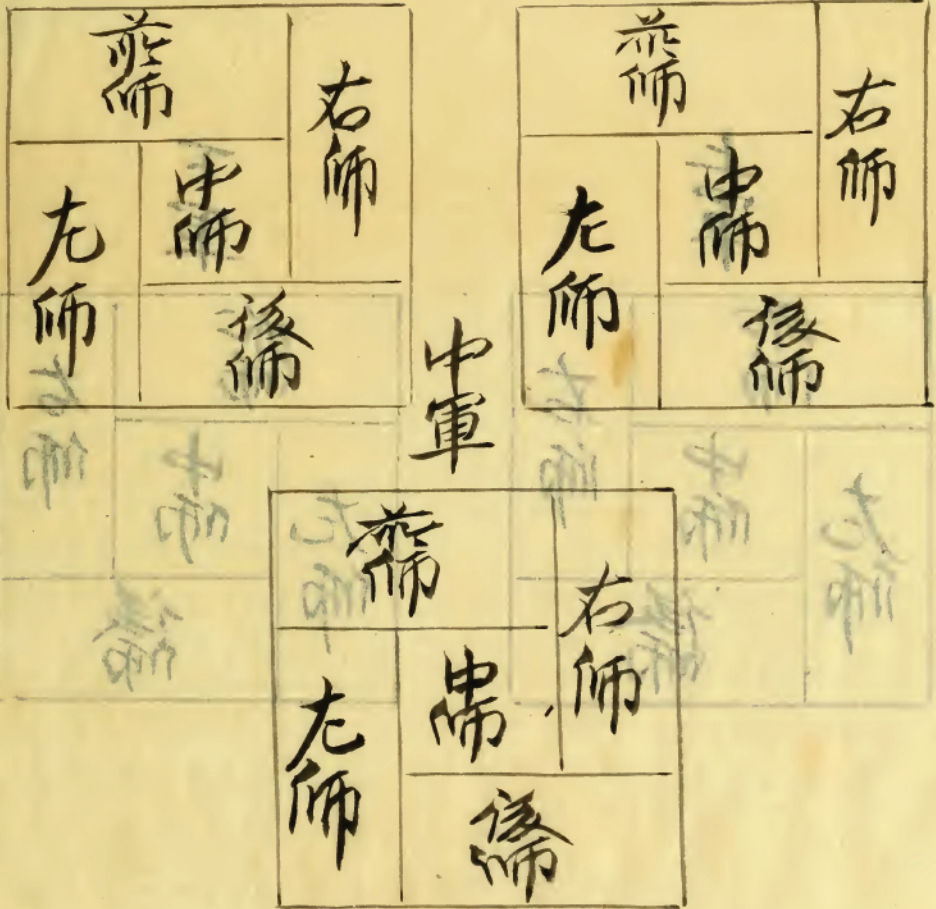 前師
右師
中師
左師
後師
前師
右師
中師
左師
後師
中軍
前師
右師
中師
左師
後師